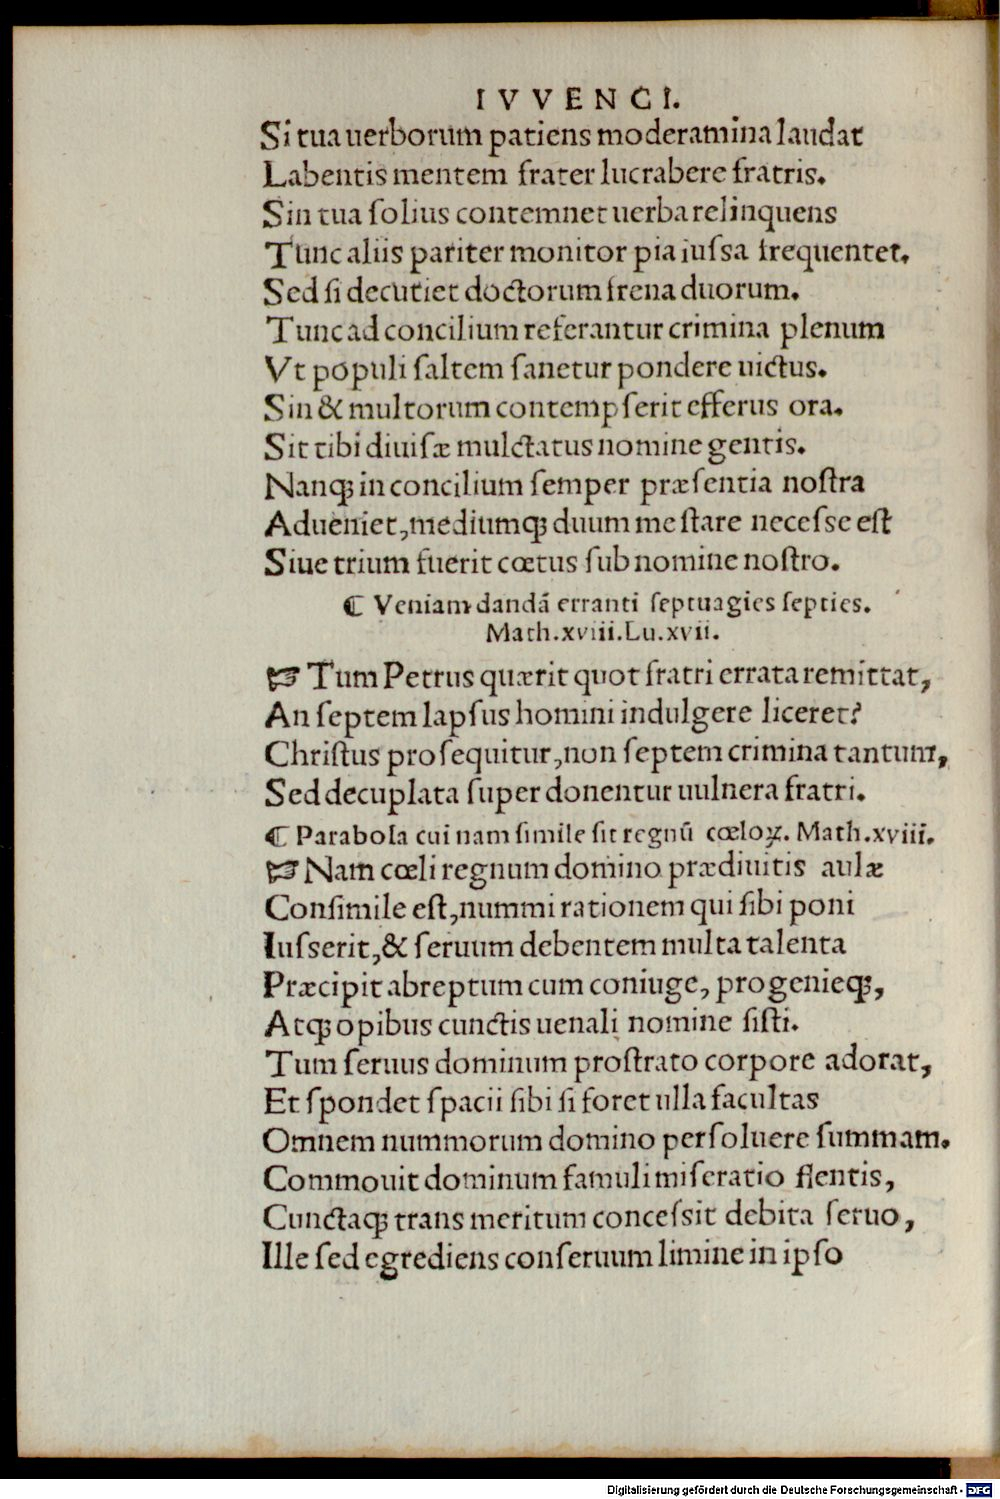 IVVENCI.
Si tua uerborum patiens moderamina laudat
Labentis mentem frater lucrabere fratris.
Sin tua ſolius contemnet uerba relinquens
Tunc aliis pariter monitor pia iuſsa frequentet.
Sed ſi decutiet doctorum frena duorum.
Tunc ad concilium referantur crimina plenum
Vt populi ſaltem ſanetur pondere uictus.
Sin & multorum contempſerit efferus ora.
Sit tibi diuiſæ mulctatus nomine gentis.
Nanqꝫ in concilium ſemper præſentia noſtra
Adueniet, mediumqꝫ duum me ſtare neceſse eſt
Siue trium fuerit cœtus ſub nomine noſtro.
⸿ Veniam dandã erranti ſeptuagies ſepties.
Math.xviii.Lu.xvii.
☞ Tum Petrus quærit quot fratri errata remittat,
An ſeptem lapſus homini indulgere liceret?
Chriſtus proſequitur, non ſeptem crimina tantum,
Sed decuplata ſuper donentur uulnera fratri.
⸿ Parabola cui nam ſimile ſit regnũ cœloꝝ. Math.xviii.
☞ Nam cœli regnum domino prædiuitis aulæ
Conſimile eſt, nummi rationem qui ſibi poni
Iuſserit, & ſeruum debentem multa talenta
Præcipit abreptum cum coniuge, progenieqꝫ,
Atqꝫ opibus cunctis uenali nomine ſiſti.
Tum ſeruus dominum proſtrato corpore adorat,
Et ſpondet ſpacii ſibi ſi foret ulla facultas
Omnem nummorum domino perſoluere ſummam.
Commouit dominum famuli miſeratio flentis,
Cunctaqꝫ trans meritum conceſsit debita ſeruo,
Ille ſed egrediens conſeruum limine in ipſo
Digitalisierung gefördert durch die Deutsche Forschungsgemeinschaft - DFG